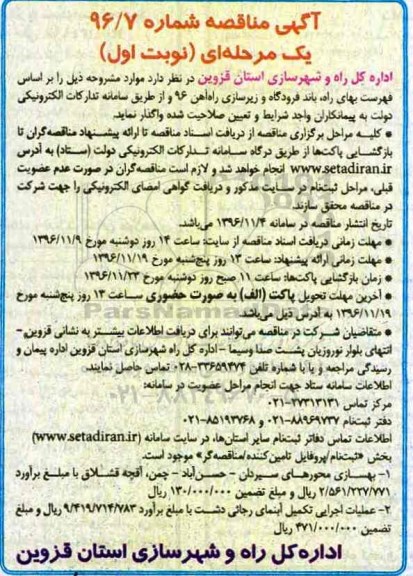 آگهی مناقصه شماره ۹۶/۷
یک مرحله‌ای (نوبت اول)
اداره کل راه و شهرسازی استان قزوین در نظر دارد موارد مشروحه ذیل را بر اساس
فهرست بهای راه، باند فرودگاه و زیرسازی راه‌آهن ۹۶ و از طریق سامانه تدارکات الکترونیکی
دولت به پیمانکاران واجد شرایط و تعیین صلاحیت شده واگذار نماید.
● کلیه مراحل برگزاری مناقصه از دریافت اسناد مناقصه تا ارائه پیشنهاد مناقصه‌گران تا
بازگشایی پاکت‌ها از طریق درگاه سامانه تدارکات الکترونیکی دولت (ستاد) به آدرس
www.setadiran.ir انجام خواهد شد و لازم است مناقصه‌گران در صورت عدم عضویت
قبلی، مراحل ثبت‌نام در سایت مذکور و دریافت گواهی امضای الکترونیکی را جهت شرکت
در مناقصه محقق سازند.
تاریخ انتشار مناقصه در سامانه ۱۳۹۶/۱۱/۴ می‌باشد.
● مهلت زمانی دریافت اسناد مناقصه از سایت: ساعت ۱۴ روز دوشنبه مورخ ۱۳۹۶/۱۱/۹
● مهلت زمانی ارائه پیشنهاد: ساعت ۱۳ روز پنج‌شنبه مورخ ۱۳۹۶/۱۱/۱۹
● زمان بازگشایی پاکت‌ها: ساعت ۱۱ صبح روز دوشنبه مورخ ۱۳۹۶/۱۱/۲۳
● آخرین مهلت تحویل پاکت (الف) به صورت حضوری ساعت ۱۳ روز پنج‌شنبه مورخ
۱۳۹۶/۱۱/۱۹ به آدرس ذیل می‌باشد.
● متقاضیان شرکت در مناقصه می‌توانند برای دریافت اطلاعات بیشتر به نشانی قزوین-
انتهای بلوار نوروزیان پشت صدا وسیما - اداره کل راه شهرسازی استان قزوین اداره پیمان و
رسیدگی مراجعه و یا با شماره تلفن ۳۳۶۵۹۴۷۴-۰۲۸ تماس حاصل نمایند.
اطلاعات سامانه ستاد جهت انجام مراحل عضویت در سامانه:
مرکز تماس ۲۷۳۱۳۱۳۱-۰۲۱
دفتر ثبت‌نام ۸۸۹۶۹۷۳۷-۰۲۱ و ۸۵۱۹۳۷۶۸-۰۲۱
اطلاعات تماس دفاتر ثبت‌نام سایر استان‌ها، در سایت سامانه (www.setadiran.ir)
بخش «ثبت‌نام/پروفایل تامین‌کننده/مناقصه‌گر» موجود است.
۱- بهسازی محورهای سیردان - حسن‌آباد - چمن، آقچه قشلاق با مبلغ برآورد
۲/۵۶۱/۲۲۷/۷۷۱ ریال و مبلغ تضمین ۱۳۰/۰۰۰/۰۰۰ ریال
۲- عملیات اجرایی تکمیل آبنمای رجائی دشت با مبلغ برآورد ۹/۴۱۹/۷۱۴/۷۸۳ ریال و مبلغ
تضمین ۴۷۱/۰۰۰/۰۰۰ ریال
اداره‌کل راه و شهرسازی استان قزوین